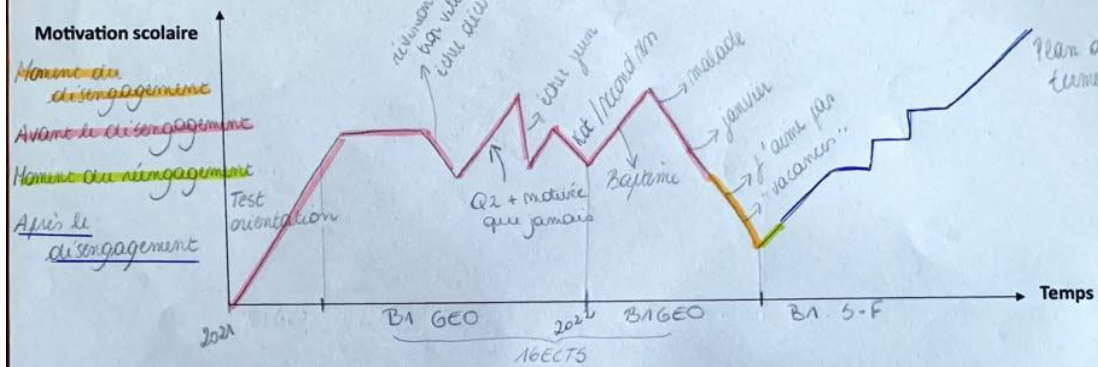 Motivation scolaire
Moment du
désengagement
Avant le désengagement
Moment du réengagement
Après le
désengagement
Test
orientation
révision
trop
échec
Q2 + motivée
que jamais
échec juin
Kot /
Baptême
malade
janvier
J'aime pas
"vacances"
Plan
terme
Temps
2021
B1 GEO
2022
B1GEO
B1 S-F
16ECTS